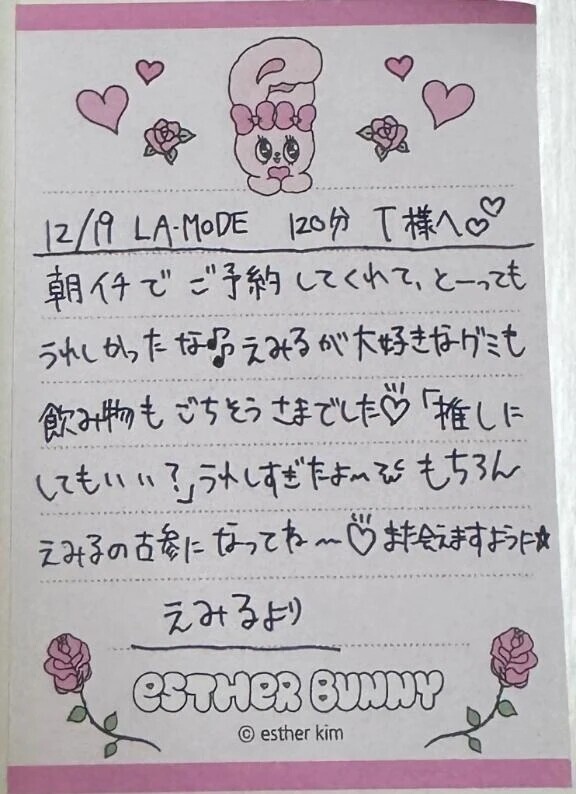 12/19 LA・MODE 120分 T様へ♡♡
朝イチでご予約してくれて、とーっても
うれしかったな♫えみるが大好きなグミも
飲み物もごちそうさまでした♡「推しに
してもいい?」うれしすぎたよ〜 もちろん
えみるの古参になってね〜♡また会えますように☆
えみるより
ESTHER BUNNY
© esther kim